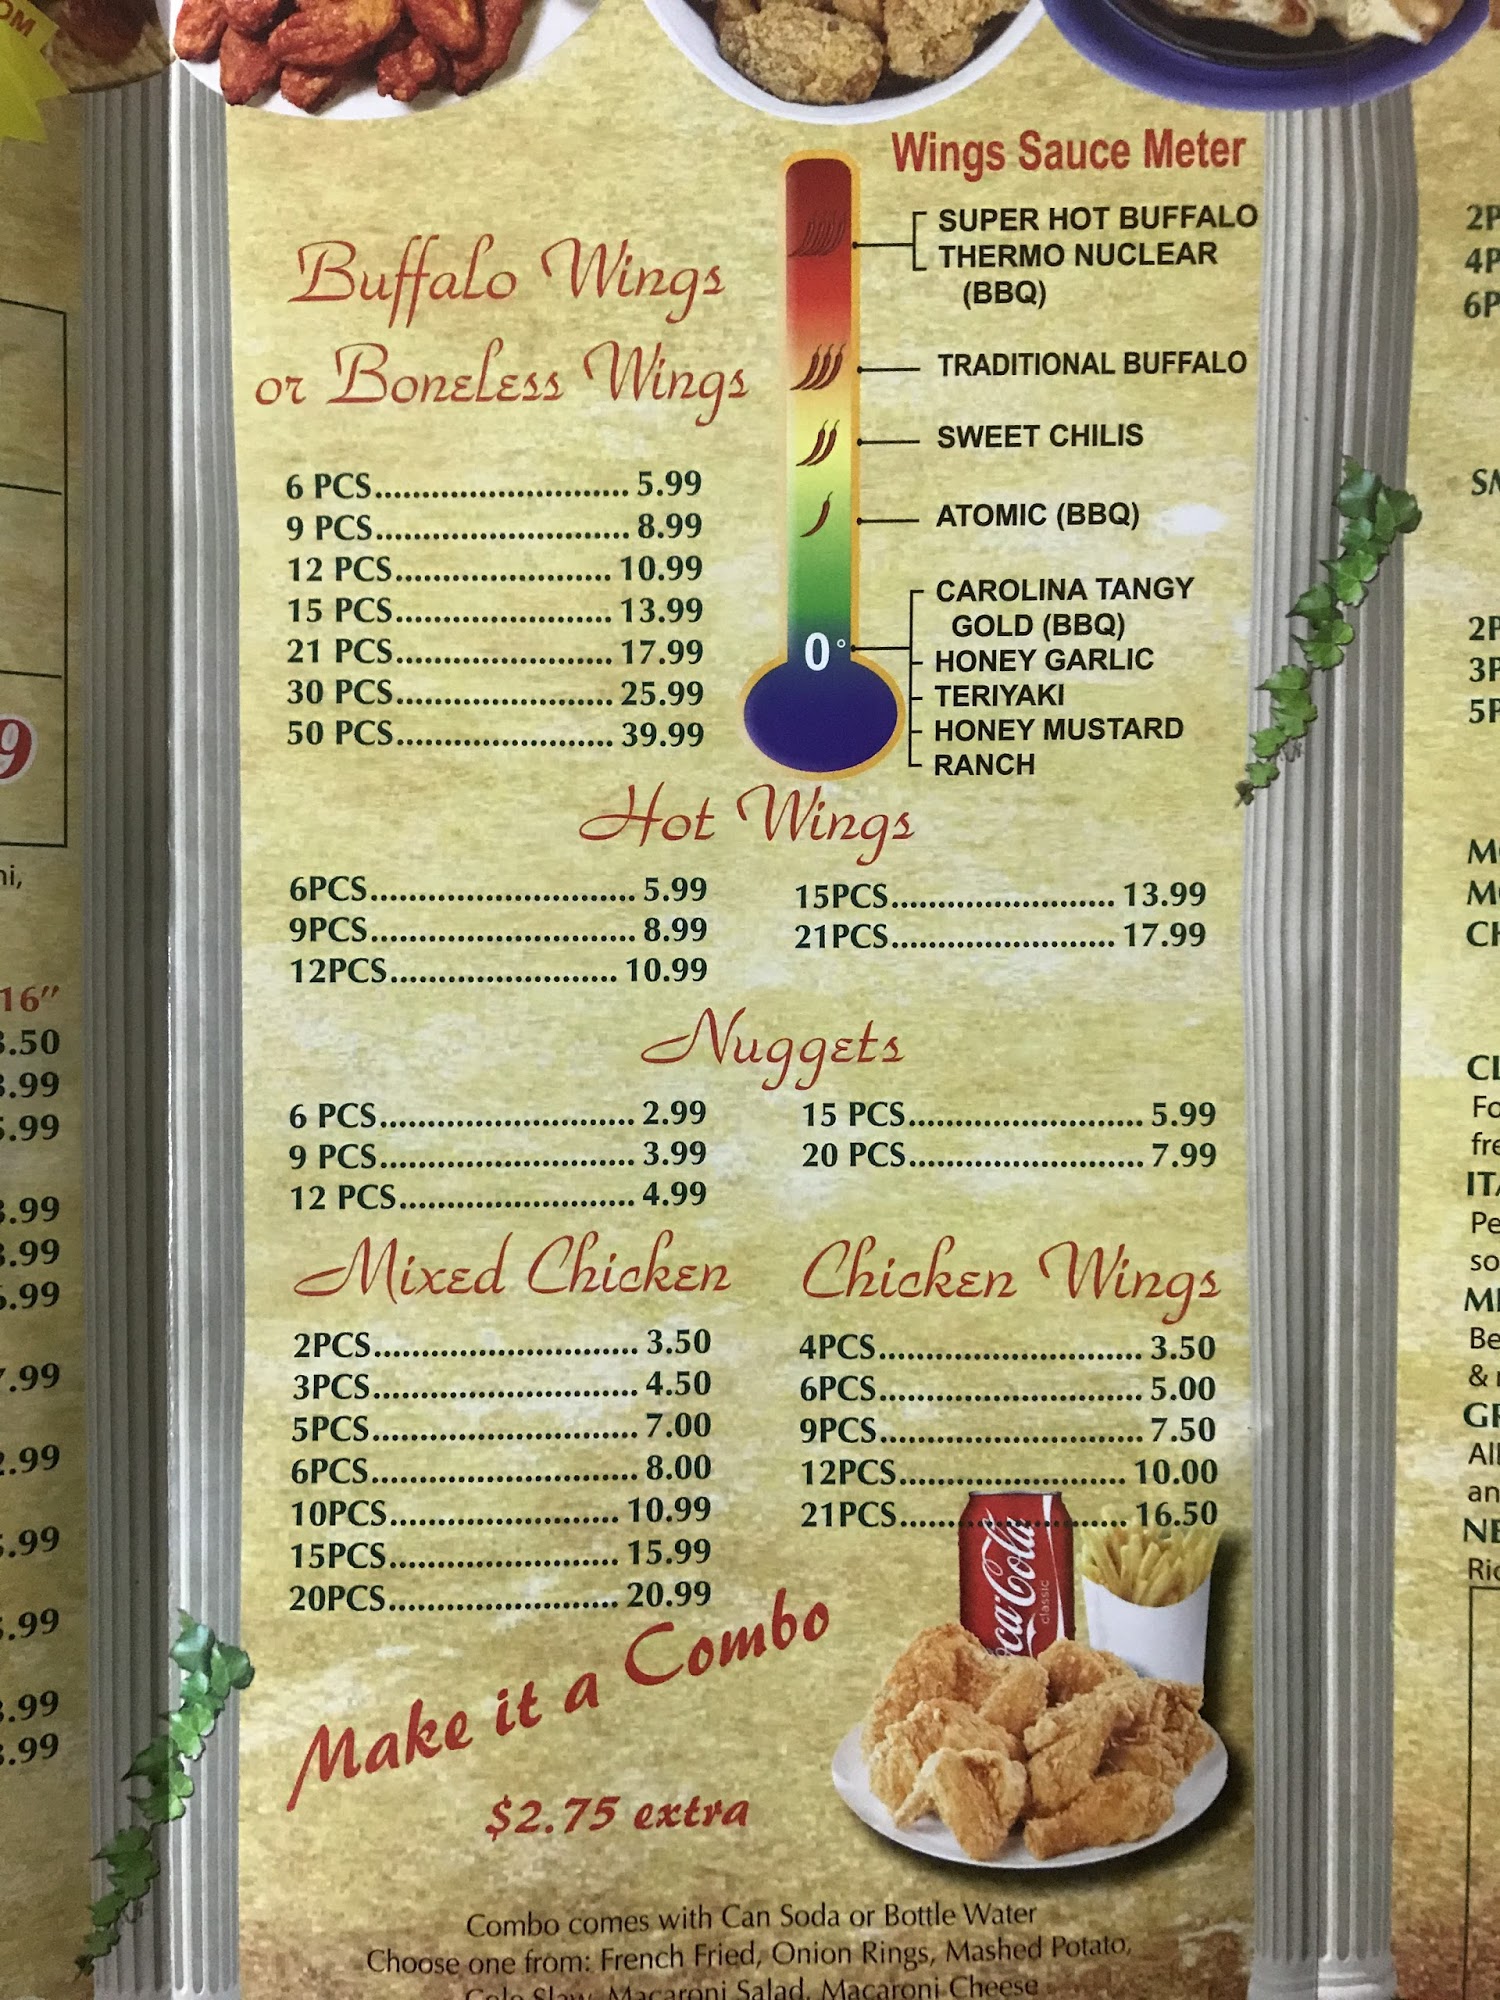 Wings Sauce Meter
SUPER HOT BUFFALO
THERMO NUCLEAR
(BBQ)
TRADITIONAL BUFFALO
SWEET CHILIS
ATOMIC (BBQ)
0°
CAROLINA TANGY
GOLD (BBQ)
HONEY GARLIC
TERIYAKI
HONEY MUSTARD
RANCH
Buffalo Wings
or Boneless Wings
6 PCS............................ 5.99
9 PCS............................ 8.99
12 PCS....................... 10.99
15 PCS....................... 13.99
21 PCS....................... 17.99
30 PCS....................... 25.99
50 PCS....................... 39.99
Hot Wings
6PCS............................ 5.99
9PCS............................ 8.99
12PCS........................ 10.99
15PCS........................ 13.99
21PCS........................ 17.99
Nuggets
6 PCS........................... 2.99
9 PCS........................... 3.99
12 PCS......................... 4.99
15 PCS......................... 5.99
20 PCS......................... 7.99
Mixed Chicken
2PCS............................ 3.50
3PCS............................ 4.50
5PCS............................ 7.00
6PCS............................ 8.00
10PCS........................ 10.99
15PCS........................ 15.99
20PCS........................ 20.99
Chicken Wings
4PCS............................ 3.50
6PCS............................ 5.00
9PCS............................ 7.50
12PCS........................ 10.00
21PCS........................ 16.50
Coca-Cola
classic
Make it a Combo
$2.75 extra
Combo comes with Can Soda or Bottle Water
Choose one from: French Fried, Onion Rings, Mashed Potato,
Cole Slaw, Macaroni Salad, Macaroni Cheese
16"
.50
.99
.99
.99
.99
.99
.99
.99
.99
.99
.99
.99